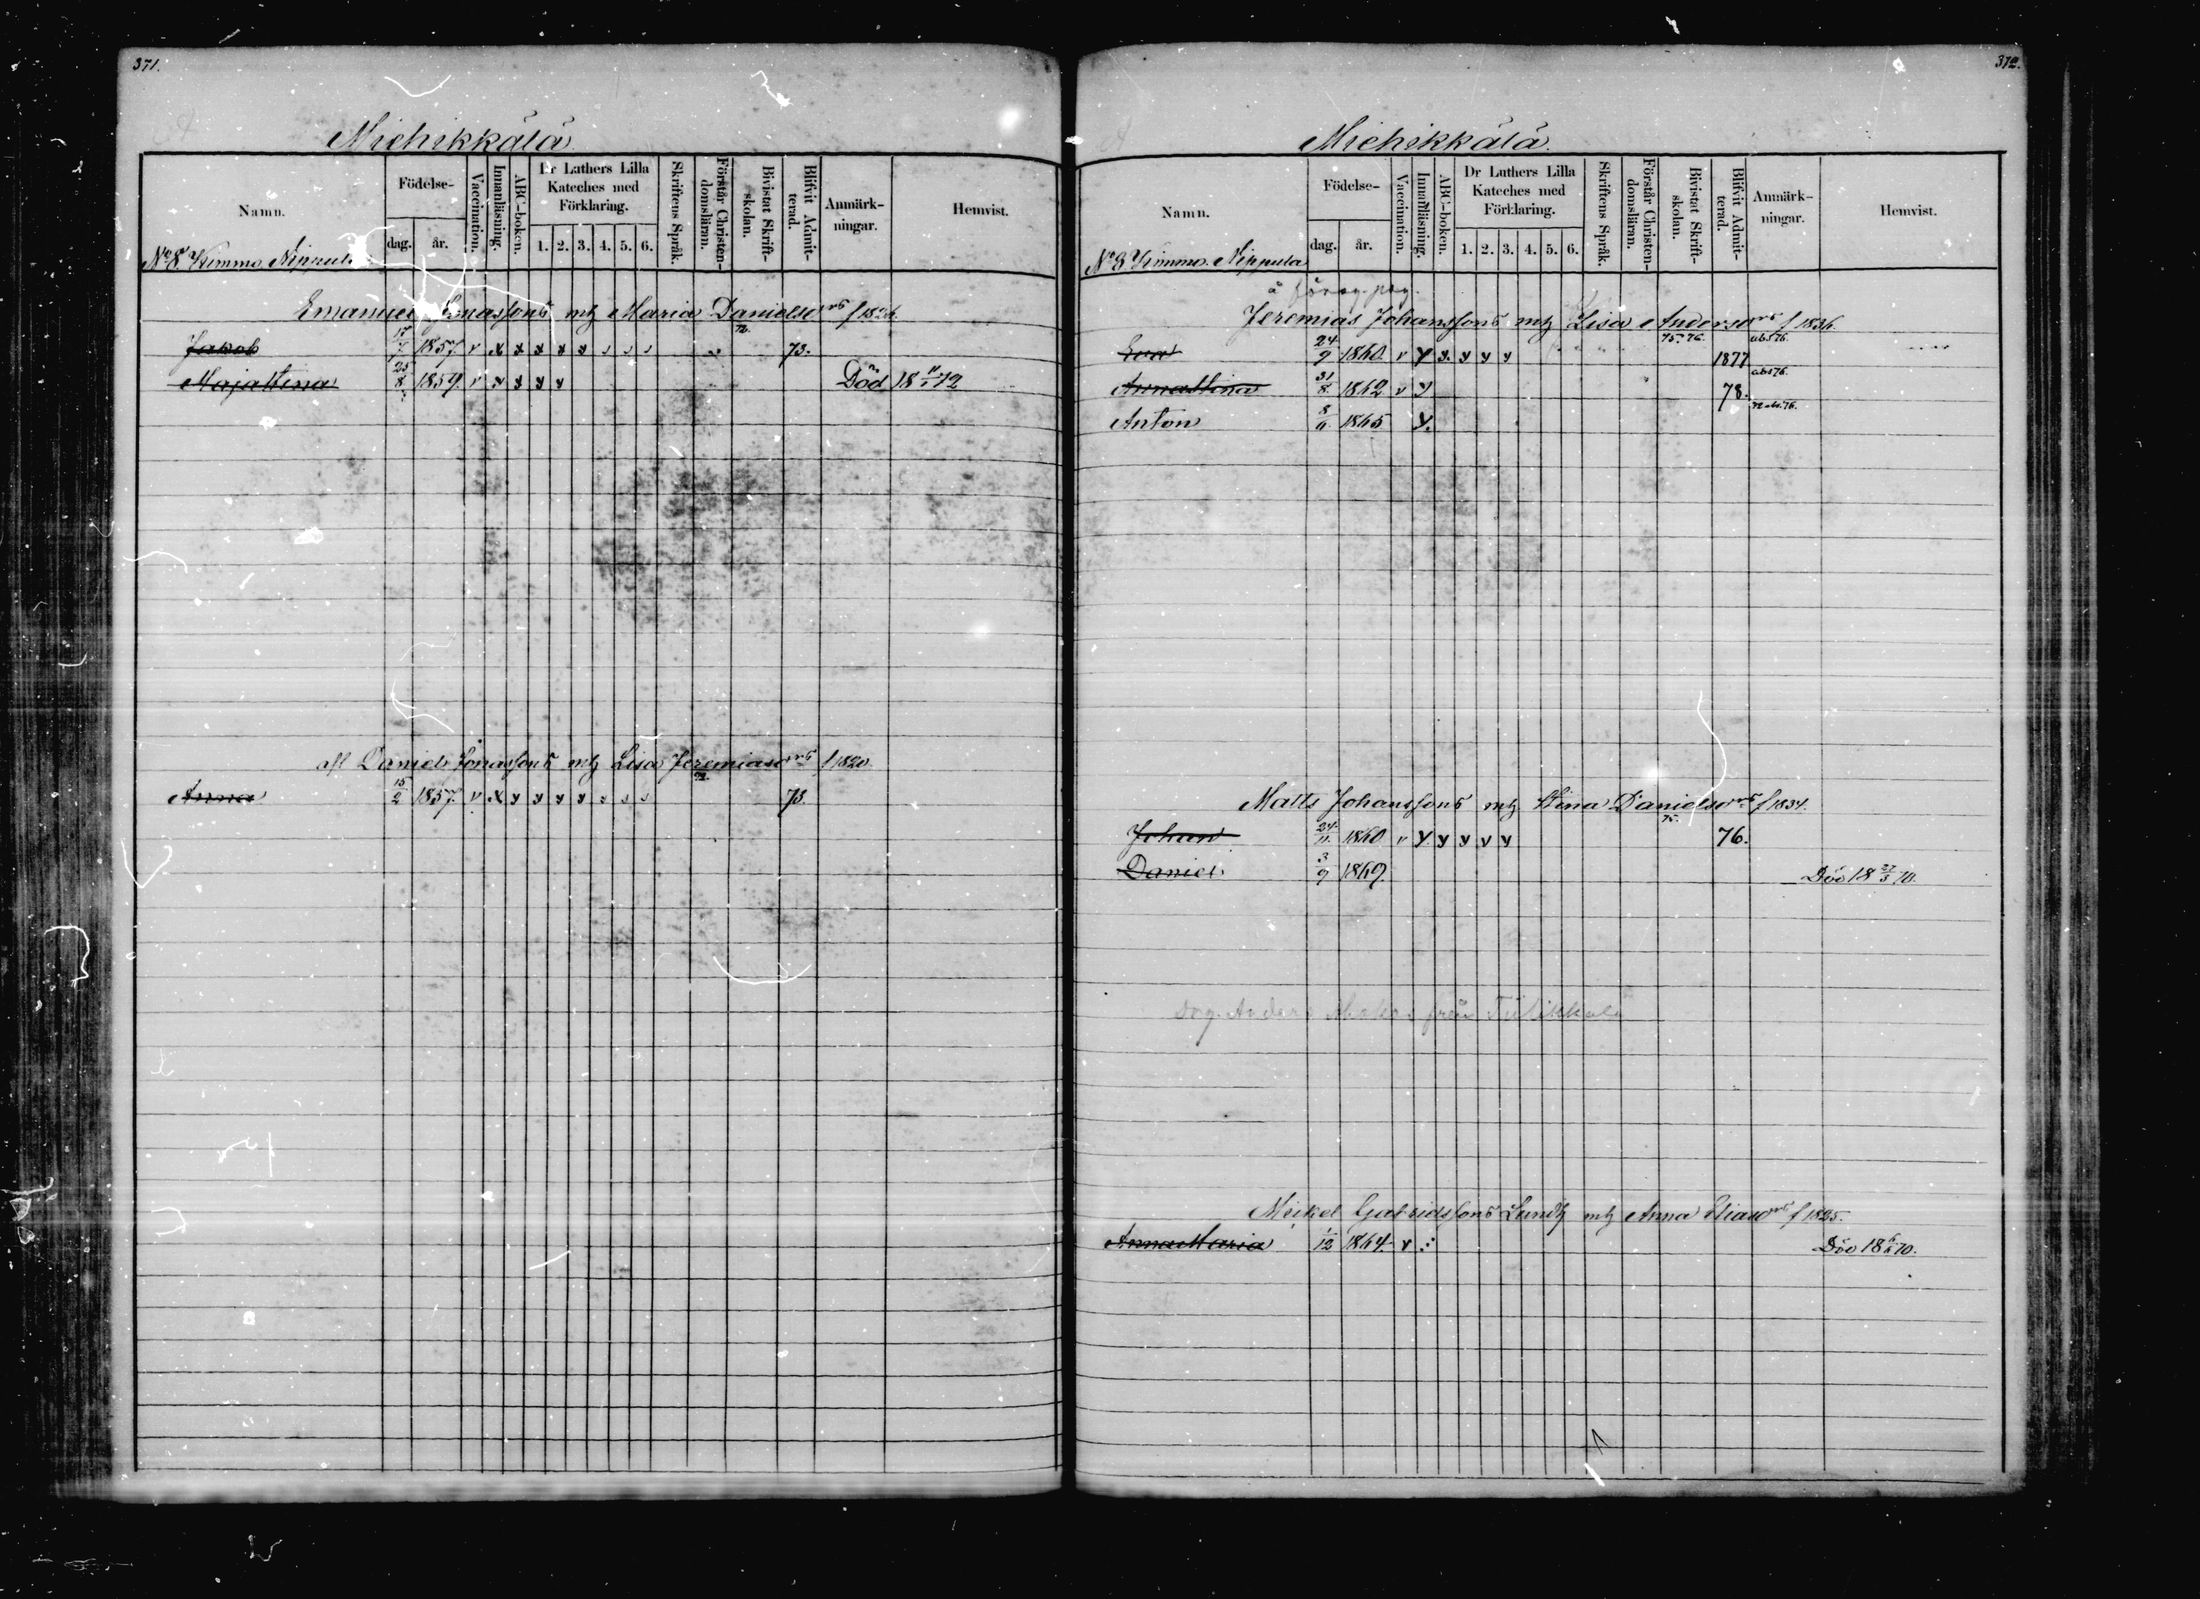 371.
Michikkälä
Namn.
Födelse-
dag.
år.
Vaccination.
Innanläsning.
ABC-boken.
Dr Luthers Lilla
Kateches med
Förklaring.
1. 2. 3. 4. 5. 6.
Skriftens Språk.
Förstår Christen-
domsläran.
Bivistat Skrift-
skolan.
Blifvit Admit-
terad.
Anmärk-
ningar.
Hemvist.
No 8. Kimmo Nippula
Emanuel Jonassons mh Maria Danielsdrs f 1826.
72.
Jakob 17/7 1857. v x y y y y 73.
Maja Stina 25/8 1859. v x y y y Död 18 11/1 72
afl Daniel Jonassons mh Lisa Jeremiasdrs f 1820
72.
Anna 15/2 1857. v x y y y y 73.
372.
Michikkälä.
Namn.
Födelse-
dag.
år.
Vaccination.
Innanläsning.
ABC-boken.
Dr Luthers Lilla
Kateches med
Förklaring.
1. 2. 3. 4. 5. 6.
Skriftens Språk.
Förstår Christen-
domsläran.
Bivistat Skrift-
skolan.
Blifvit Admit-
terad.
Anmärk-
ningar.
Hemvist.
No 8 Kimmo Nippula
å föreg. pag.
Jeremias Johanssons mh Lisa Andersdrs f 1836.
75. 76. abs 76.
Eva 24/9 1860. v y y. y y y 1877
abs 76.
Anna Stina 31/8 1862 v y 78.
Anton 8/11 1865 y.
Matts Johanssons mh Stina Danielsdrs f 1834.
75.
Johan 24/11 1860 v y y y v y 76.
Daniel 3/9 1869. Död 18 27/3 70.
från
Mickel Gabrielssons Lundh mh Anna Eliasdrs f 1825.
Anna Maria 1/12 1864. v Död 18 6/6 70.